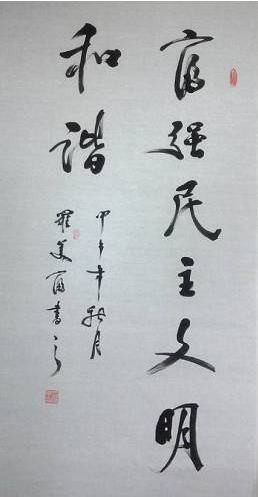 富强民主文明
和谐
甲午年秋月
羅美富書之